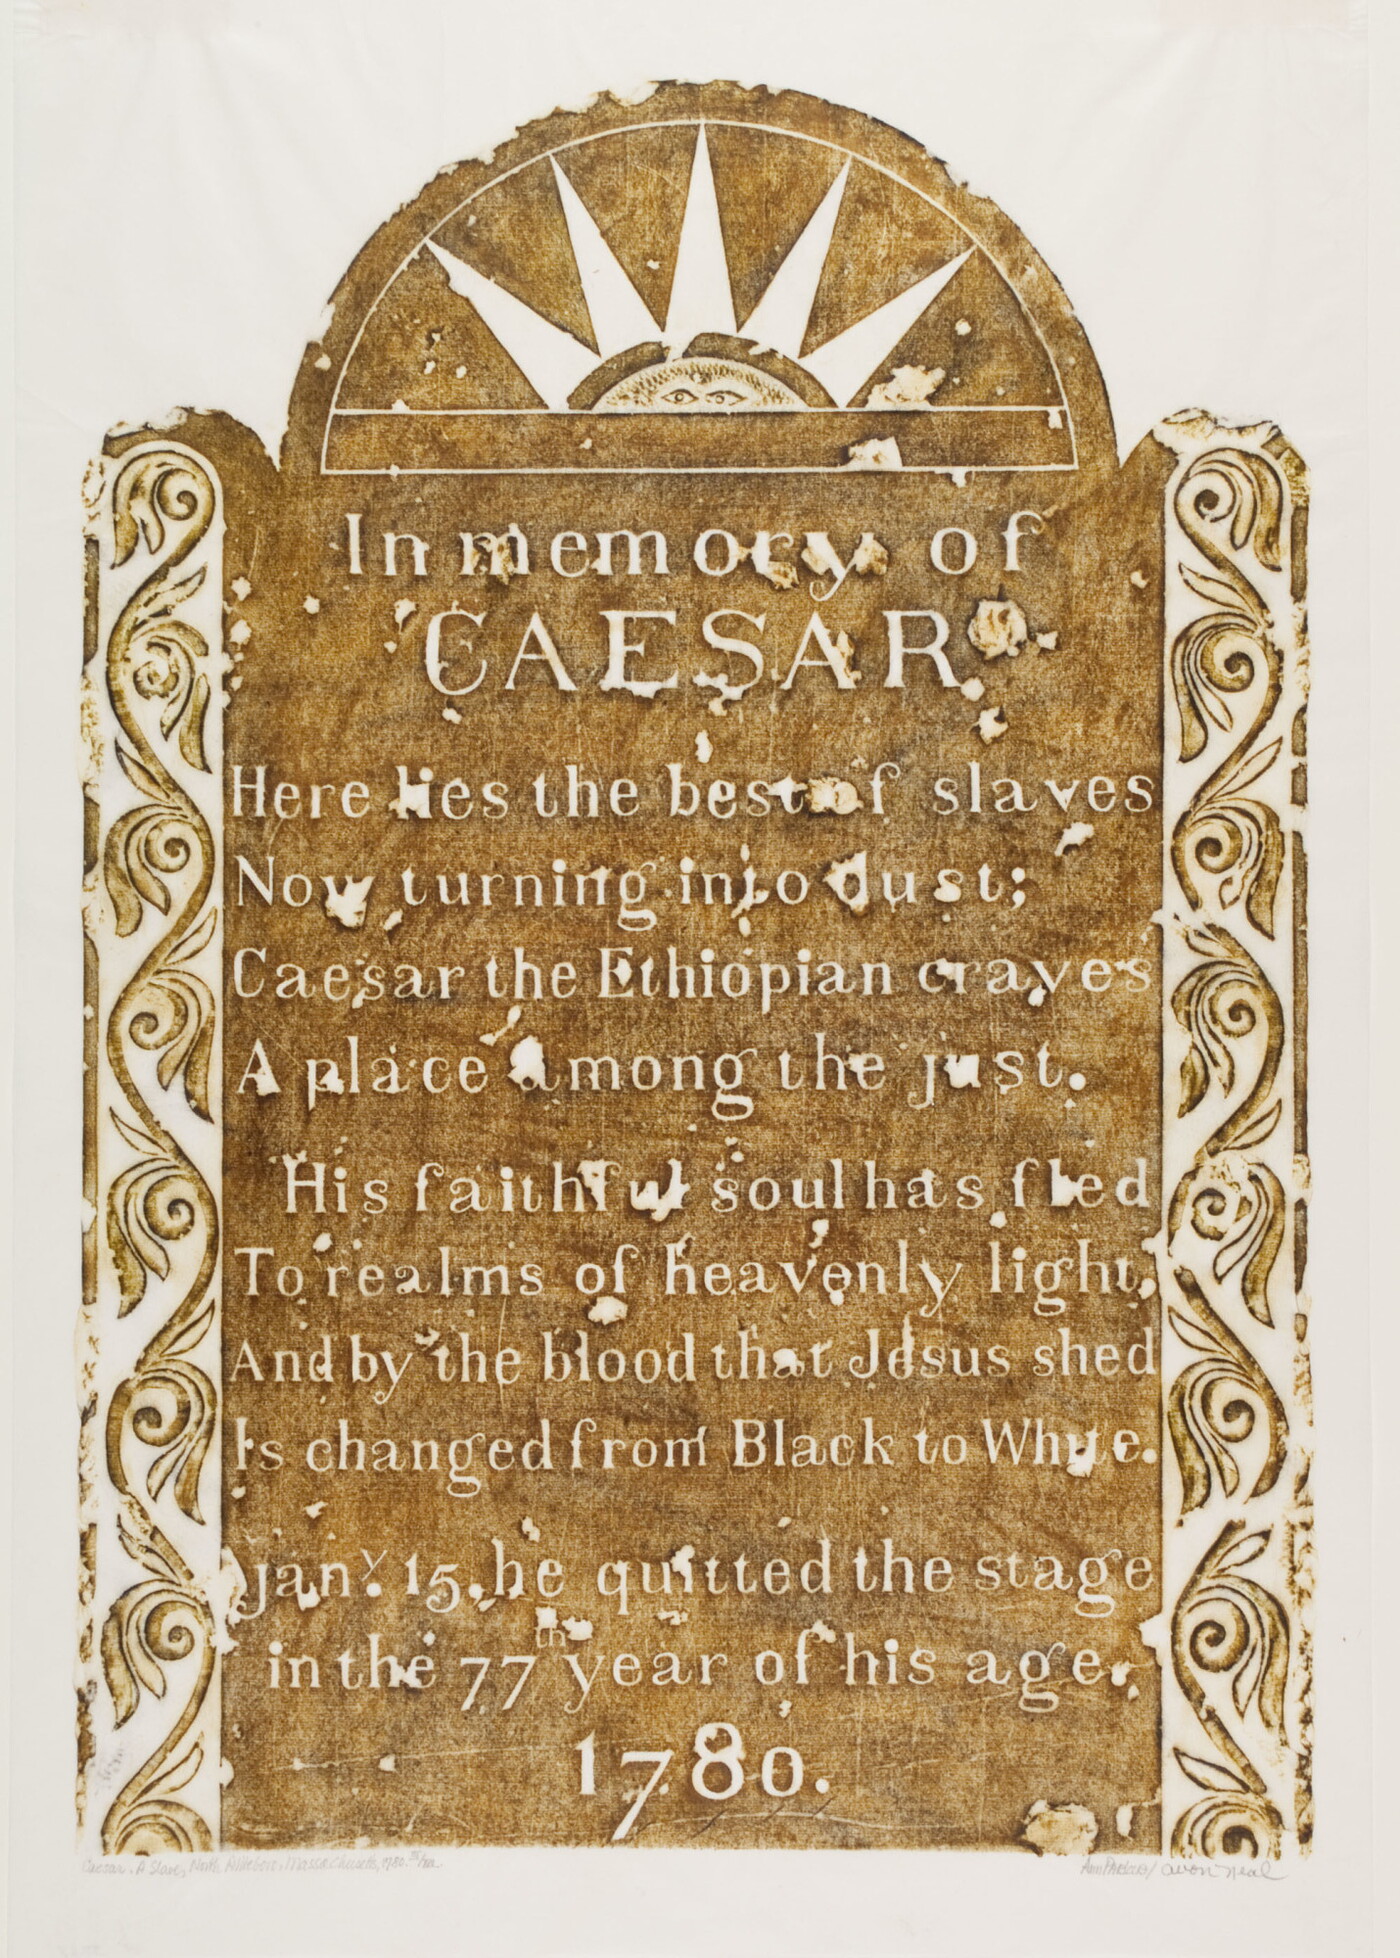 In memory of
CAESAR
Here lies the best of slaves
Now turning into dust;
Caesar the Ethiopian craves
A place among the just.
His faithful soul has fled
To realms of heavenly light,
And by the blood that Jesus shed
Is changed from Black to White.
Jan.y 15. he quitted the stage
in the 77th year of his age.
1780.
Caesar, A Slave, North Attleboro, Massachusetts, 1780.
Ann Parker / Avon Neal